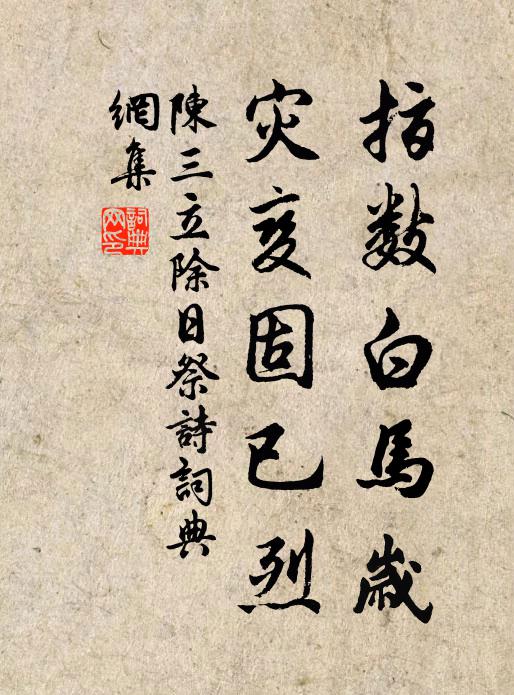 指數白馬歲
災變固已烈
陳三立除日祭詩詞典
網集
詞典網印